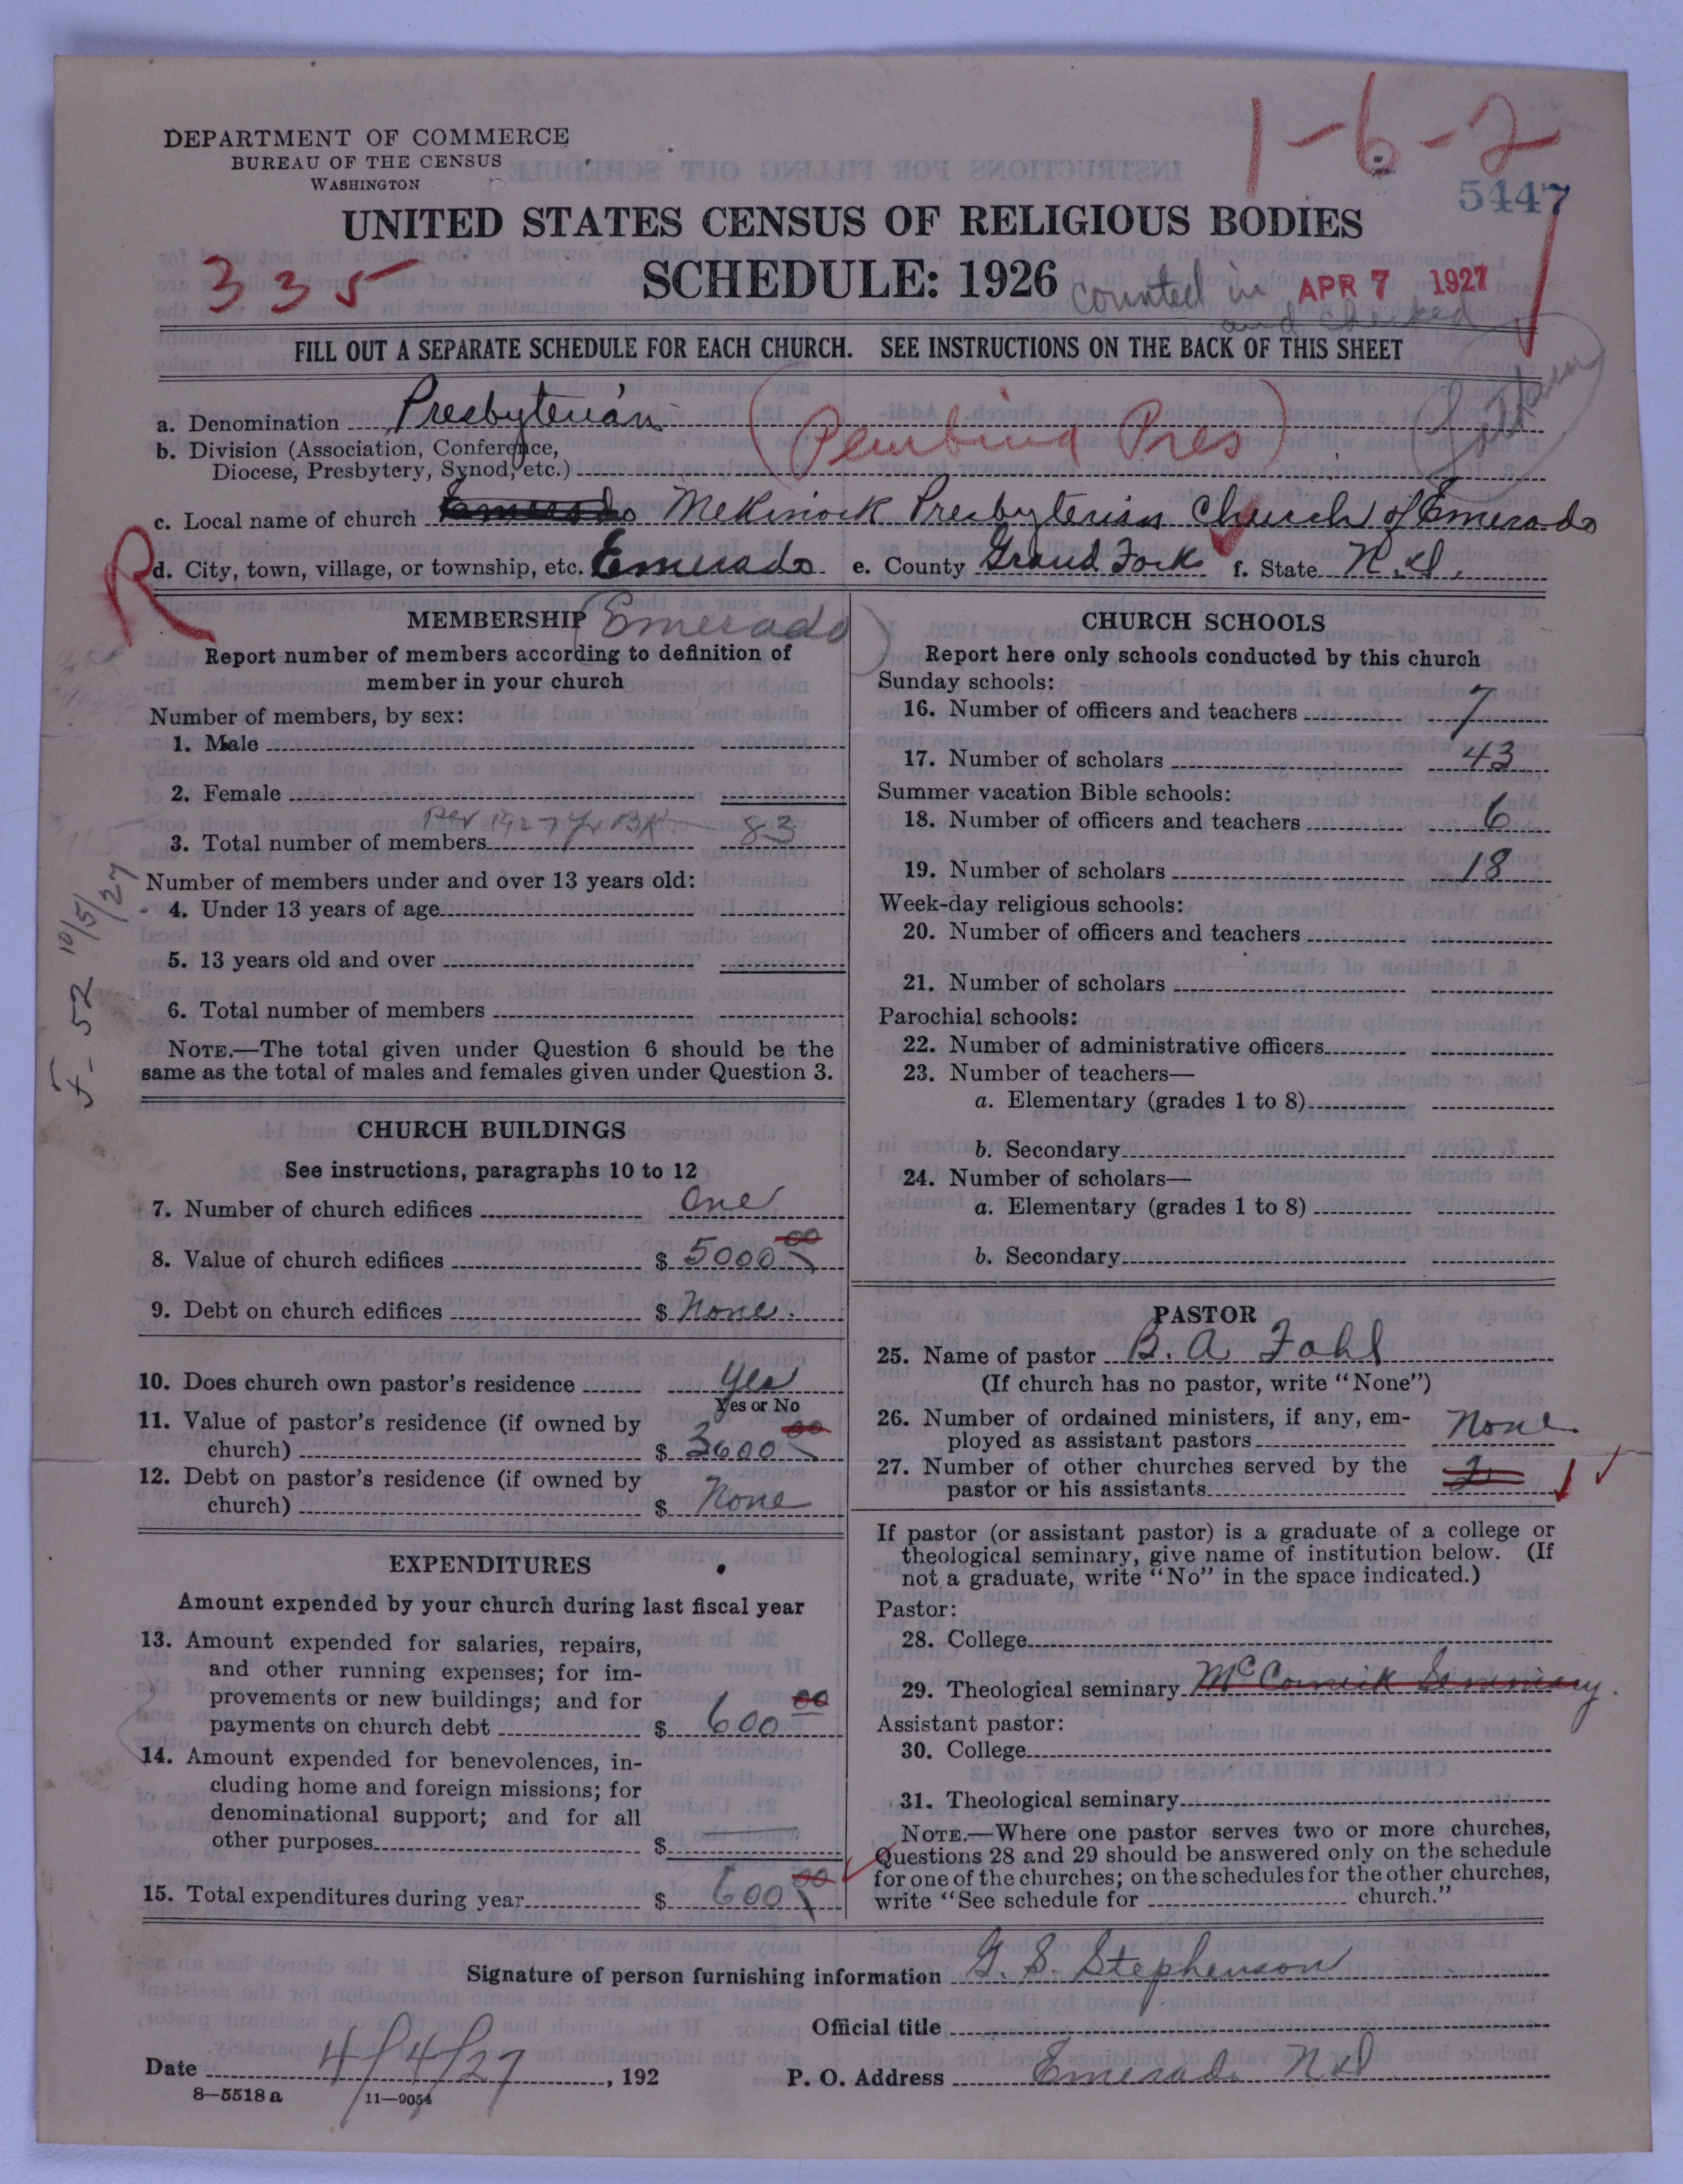 DEPARTMENT OF COMMERCE
BUREAU OF THE CENSUS
WASHINGTON
1-6-2
5447
UNITED STATES CENSUS OF RELIGIOUS BODIES
335
SCHEDULE: 1926
counted in APR 7 1927
and checked
FILL OUT A SEPARATE SCHEDULE FOR EACH CHURCH. SEE INSTRUCTIONS ON THE BACK OF THIS SHEET
a. Denomination Presbyterian
(Pembina Pres)
b. Division (Association, Conference,
Diocese, Presbytery, Synod, etc.)
c. Local name of church Emerado Mekinock Presbyterian Church of Emerado
R
d. City, town, village, or township, etc. Emerado e. County Grand Forks f. State N.D.
MEMBERSHIP (Emerado)
Report number of members according to definition of
member in your church
Number of members, by sex:
1. Male
2. Female
Per 1927 Yr Bk
3. Total number of members 83
Number of members under and over 13 years old:
4. Under 13 years of age
5. 13 years old and over
6. Total number of members
NOTE.—The total given under Question 6 should be the
same as the total of males and females given under Question 3.
10/5/27
CHURCH BUILDINGS
See instructions, paragraphs 10 to 12
7. Number of church edifices One
8. Value of church edifices $ 5000 00
9. Debt on church edifices $ None.
10. Does church own pastor's residence Yes
Yes or No
11. Value of pastor's residence (if owned by
church) $ 00
12. Debt on pastor's residence (if owned by
church) $ None
EXPENDITURES
Amount expended by your church during last fiscal year
13. Amount expended for salaries, repairs,
and other running expenses; for im-
provements or new buildings; and for
payments on church debt $ 600 00
14. Amount expended for benevolences, in-
cluding home and foreign missions; for
denominational support; and for all
other purposes $
15. Total expenditures during year $ 600 00
CHURCH SCHOOLS
Report here only schools conducted by this church
Sunday schools:
16. Number of officers and teachers 7
17. Number of scholars 43
Summer vacation Bible schools:
18. Number of officers and teachers 6
19. Number of scholars 18
Week-day religious schools:
20. Number of officers and teachers
21. Number of scholars
Parochial schools:
22. Number of administrative officers
23. Number of teachers—
a. Elementary (grades 1 to 8)
b. Secondary
24. Number of scholars—
a. Elementary (grades 1 to 8)
b. Secondary
PASTOR
25. Name of pastor B. A. Fahl
(If church has no pastor, write "None")
26. Number of ordained ministers, if any, em-
ployed as assistant pastors None
27. Number of other churches served by the
pastor or his assistants 2
If pastor (or assistant pastor) is a graduate of a college or
theological seminary, give name of institution below. (If
not a graduate, write "No" in the space indicated.)
Pastor:
28. College
29. Theological seminary McCormick Seminary.
Assistant pastor:
30. College
31. Theological seminary
NOTE.—Where one pastor serves two or more churches,
Questions 28 and 29 should be answered only on the schedule
for one of the churches; on the schedules for the other churches,
write "See schedule for church."
Signature of person furnishing information G. S. Stephenson
Official title
Date 4/4/27, 192 P. O. Address Emerado N D
8—5518 a 11—9054